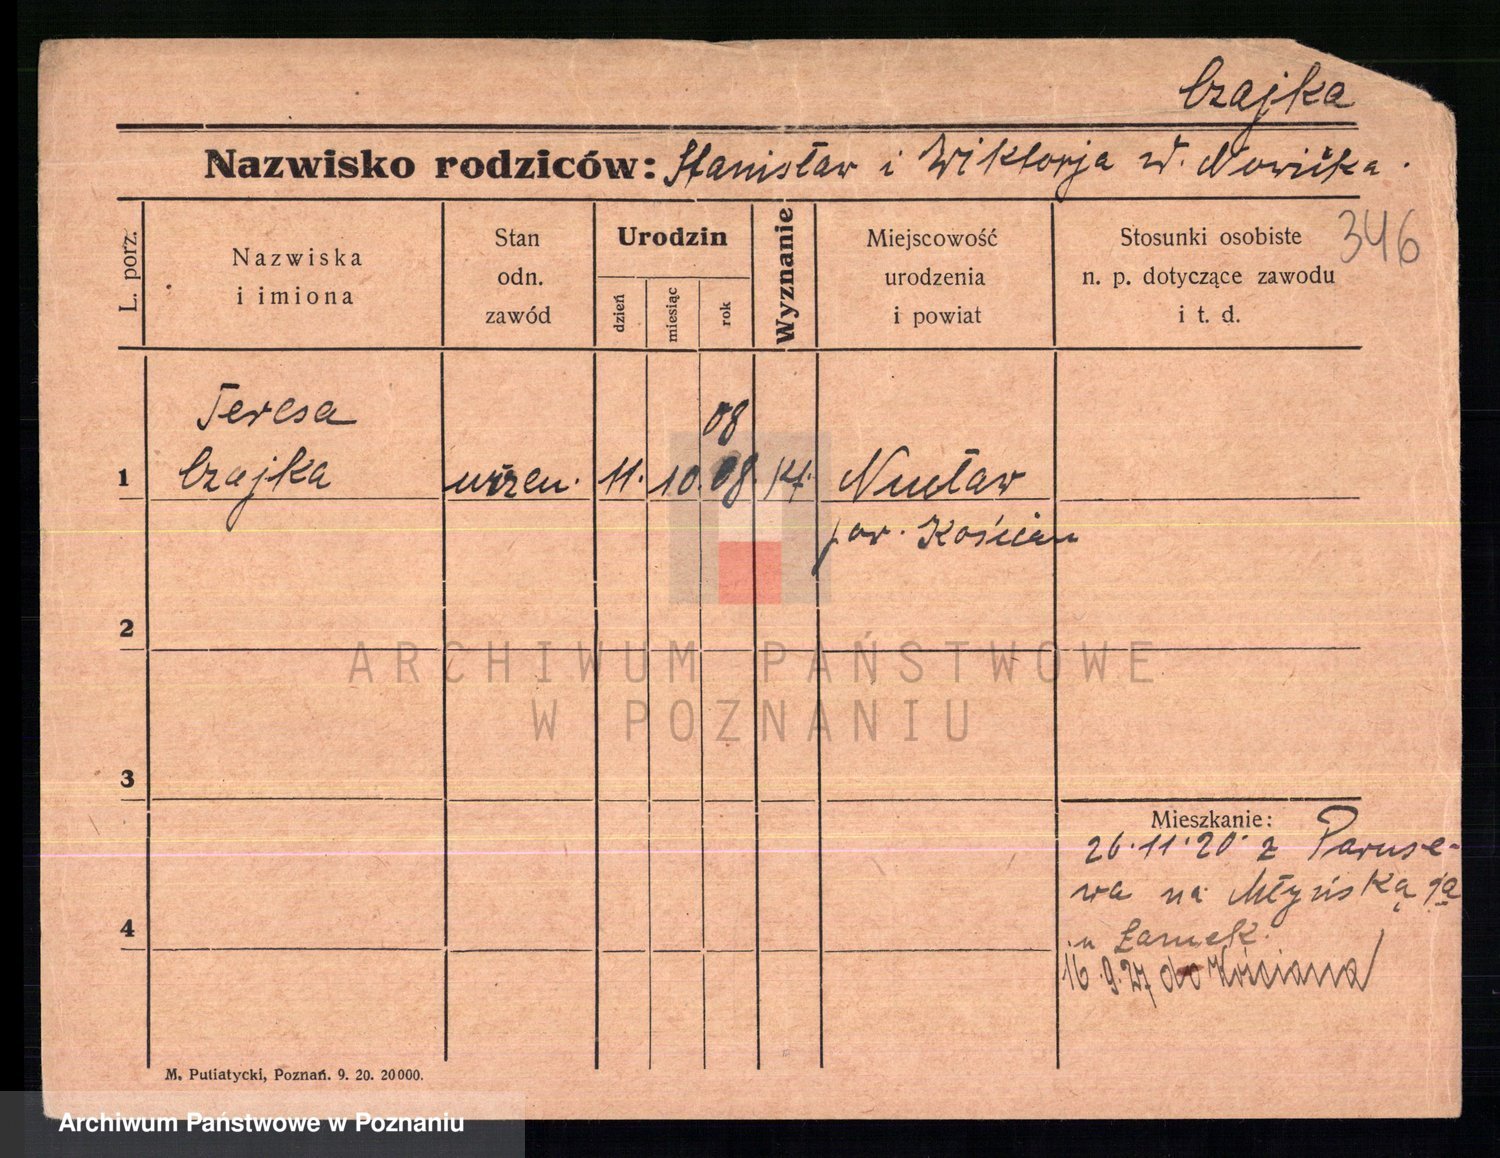 Czajka
Nazwisko rodziców: Stanisław i Wiktorja
346
L. porz.
Nazwiska
i imiona
Stan
odn.
zawód
Urodzin
dzień
miesiąc
rok
Wyznanie
Miejscowość
urodzenia
i powiat
Stosunki osobiste
n. p. dotyczące zawodu
i t. d.
Teresa
08
1 Czajka 11. 10. 08 kt.
pow. Kościan
2
ARCHIWUM PAŃSTWOWE
W POZNANIU
3
Mieszkanie:
26.11.20. z
na Młyńską
4
16.9.27 do Kościana
M. Putiatycki, Poznań. 9. 20. 20000.
Archiwum Państwowe w Poznaniu